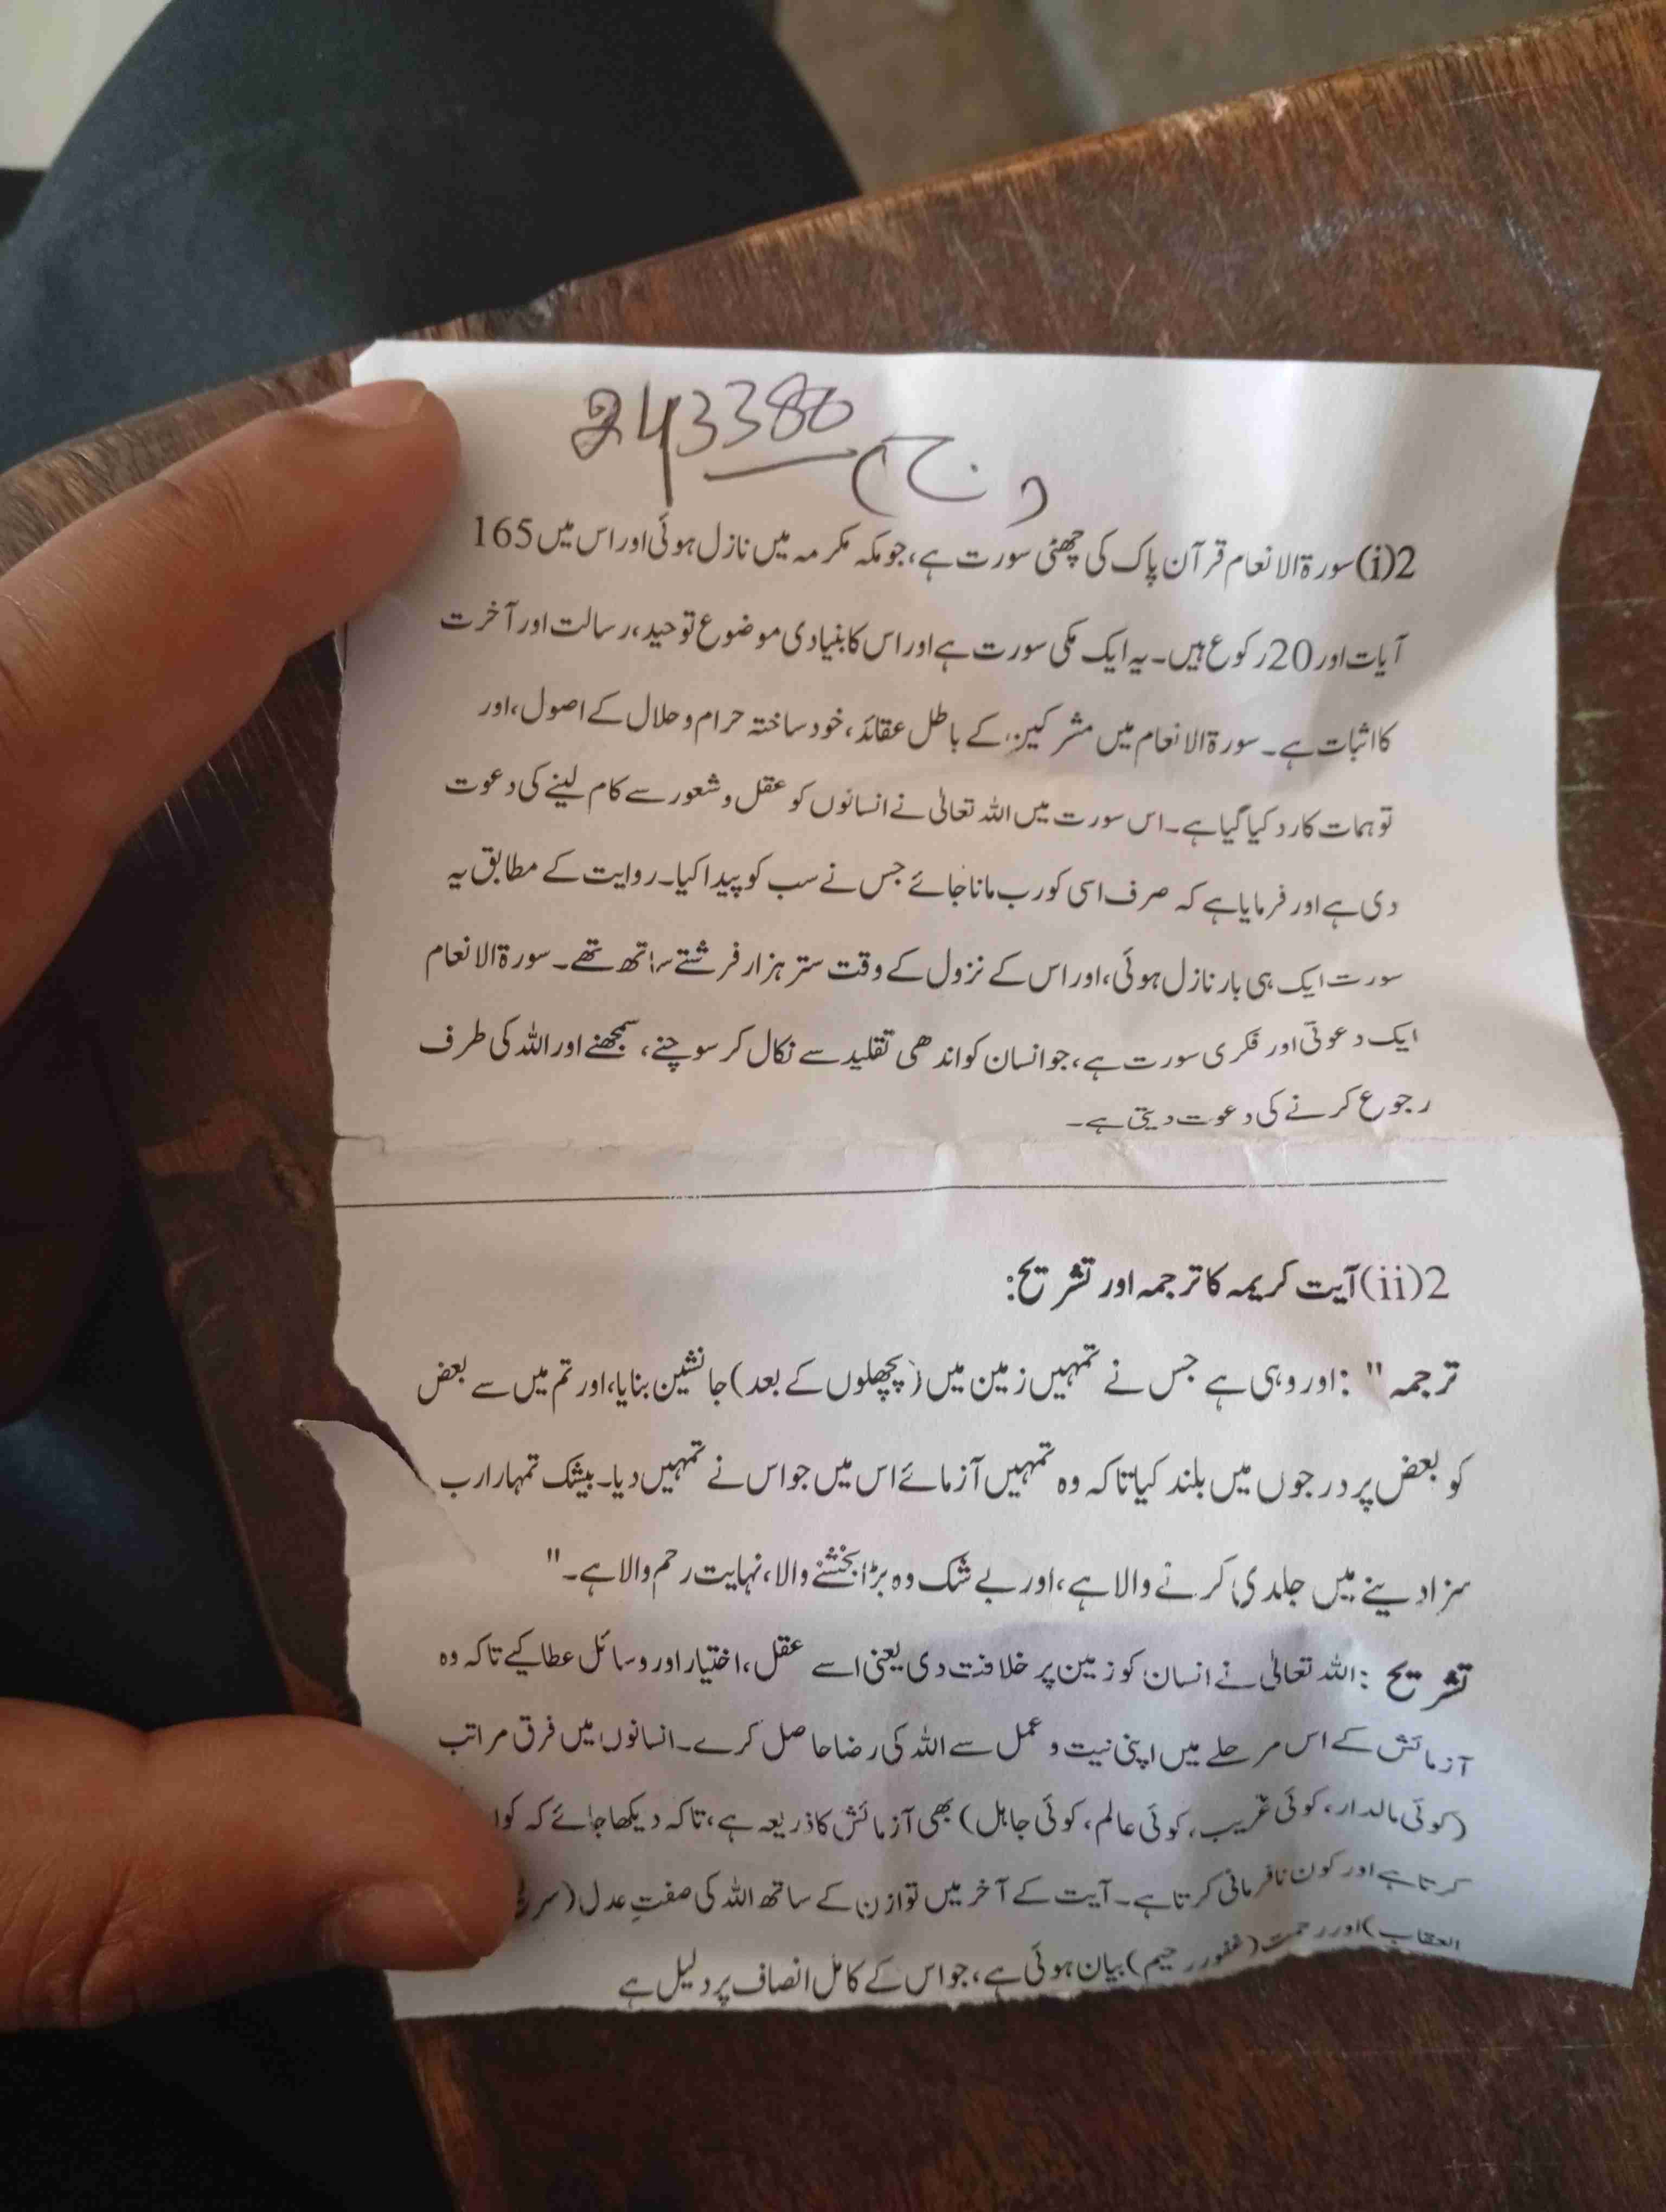 243380
(ج)
2(i) سورۃ الانعام قرآن پاک کی چھٹی سورت ہے، جو مکہ مکرمہ میں نازل ہوئی اور اس میں 165
آیات اور 20 رکوع ہیں۔ یہ ایک مکی سورت ہے اور اس کا بنیادی موضوع توحید، رسالت اور آخرت
کا اثبات ہے۔ سورۃ الانعام میں مشرکین کے باطل عقائد، خود ساختہ حرام و حلال کے اصول، اور
توہمات کا رد کیا گیا ہے۔ اس سورت میں اللہ تعالیٰ نے انسانوں کو عقل و شعور سے کام لینے کی دعوت
دی ہے اور فرمایا ہے کہ صرف اسی کو رب مانا جائے جس نے سب کو پیدا کیا۔ روایت کے مطابق یہ
سورت ایک ہی بار نازل ہوئی، اور اس کے نزول کے وقت ستر ہزار فرشتے ساتھ تھے۔ سورۃ الانعام
ایک دعوتی اور فکری سورت ہے، جو انسان کو اندھی تقلید سے نکال کر سوچنے، سمجھنے اور اللہ کی طرف
رجوع کرنے کی دعوت دیتی ہے۔
2(ii) آیت کریمہ کا ترجمہ اور تشریح:
ترجمہ": اور وہی ہے جس نے تمہیں زمین میں (پچھلوں کے بعد) جانشین بنایا، اور تم میں سے بعض
کو بعض پر درجوں میں بلند کیا تاکہ وہ تمہیں آزمائے اس میں جو اس نے تمہیں دیا۔ بیشک تمہارا رب
سزا دینے میں جلدی کرنے والا ہے، اور بے شک وہ بڑا بخشنے والا، نہایت رحم والا ہے۔"
تشریح: اللہ تعالیٰ نے انسان کو زمین پر خلافت دی یعنی اسے عقل، اختیار اور وسائل عطا کیے تاکہ وہ
آزمائش کے اس مرحلے میں اپنی نیت و عمل سے اللہ کی رضا حاصل کرے۔ انسانوں میں فرق مراتب
(کوئی مالدار، کوئی غریب، کوئی عالم، کوئی جاہل) بھی آزمائش کا ذریعہ ہے، تاکہ دیکھا جائے کہ
کرتا ہے اور کون نافرمانی کرتا ہے۔ آیت کے آخر میں توازن کے ساتھ اللہ کی صفتِ عدل (
العقاب) اور رحمت (غفور رحیم) بیان ہوئی ہے، جو اس کے کامل انصاف پر دلیل ہے